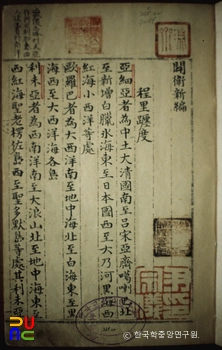 闢衛新編
程里躔度
亞細亞者為中土大清國南至呂宋亞齊噶喇巴北
至新增白臘氷海東至日本國西至大乃河里海西
紅海小西洋等處
歐羅巴者為大西洋南至地中海北至白海東至黑
海西至大西洋海各島
利未亞者為西南洋南至大浪山北至地中海東至
西紅海聖老楞佐島西至聖多默島等處其利未亞
© 한국학중앙연구원